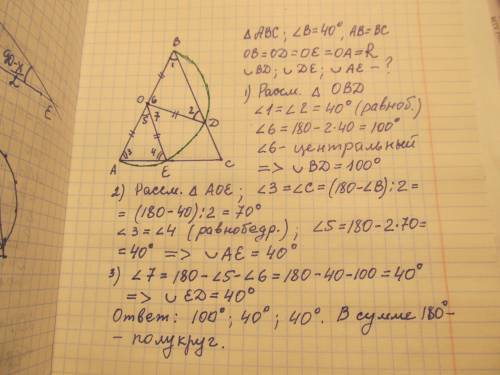 90-x
2
E
B
1
O
6
5
7
2
D
3
4
A
E
C
Δ ABC; ∠B=40°, AB=BC
OB=OD=OE=OA=R
∪BD; ∪DE; ∪AE - ?
1) Рассм. Δ OBD
∠1=∠2=40° (равноб.)
∠6=180-2·40=100°
∠6- центральный
=> ∪BD=100°
2) Рассм. Δ AOE; ∠3=∠C=(180-∠B):2=
=(180-40):2=70°
∠3=∠4 (равнобедр.); ∠5=180-2·70=
=40° => ∪AE=40°
3) ∠7=180-∠5-∠6=180-40-100=40°
=> ∪ED=40°
Ответ: 100°; 40°; 40°. В сумме 180°-
- полукруг.